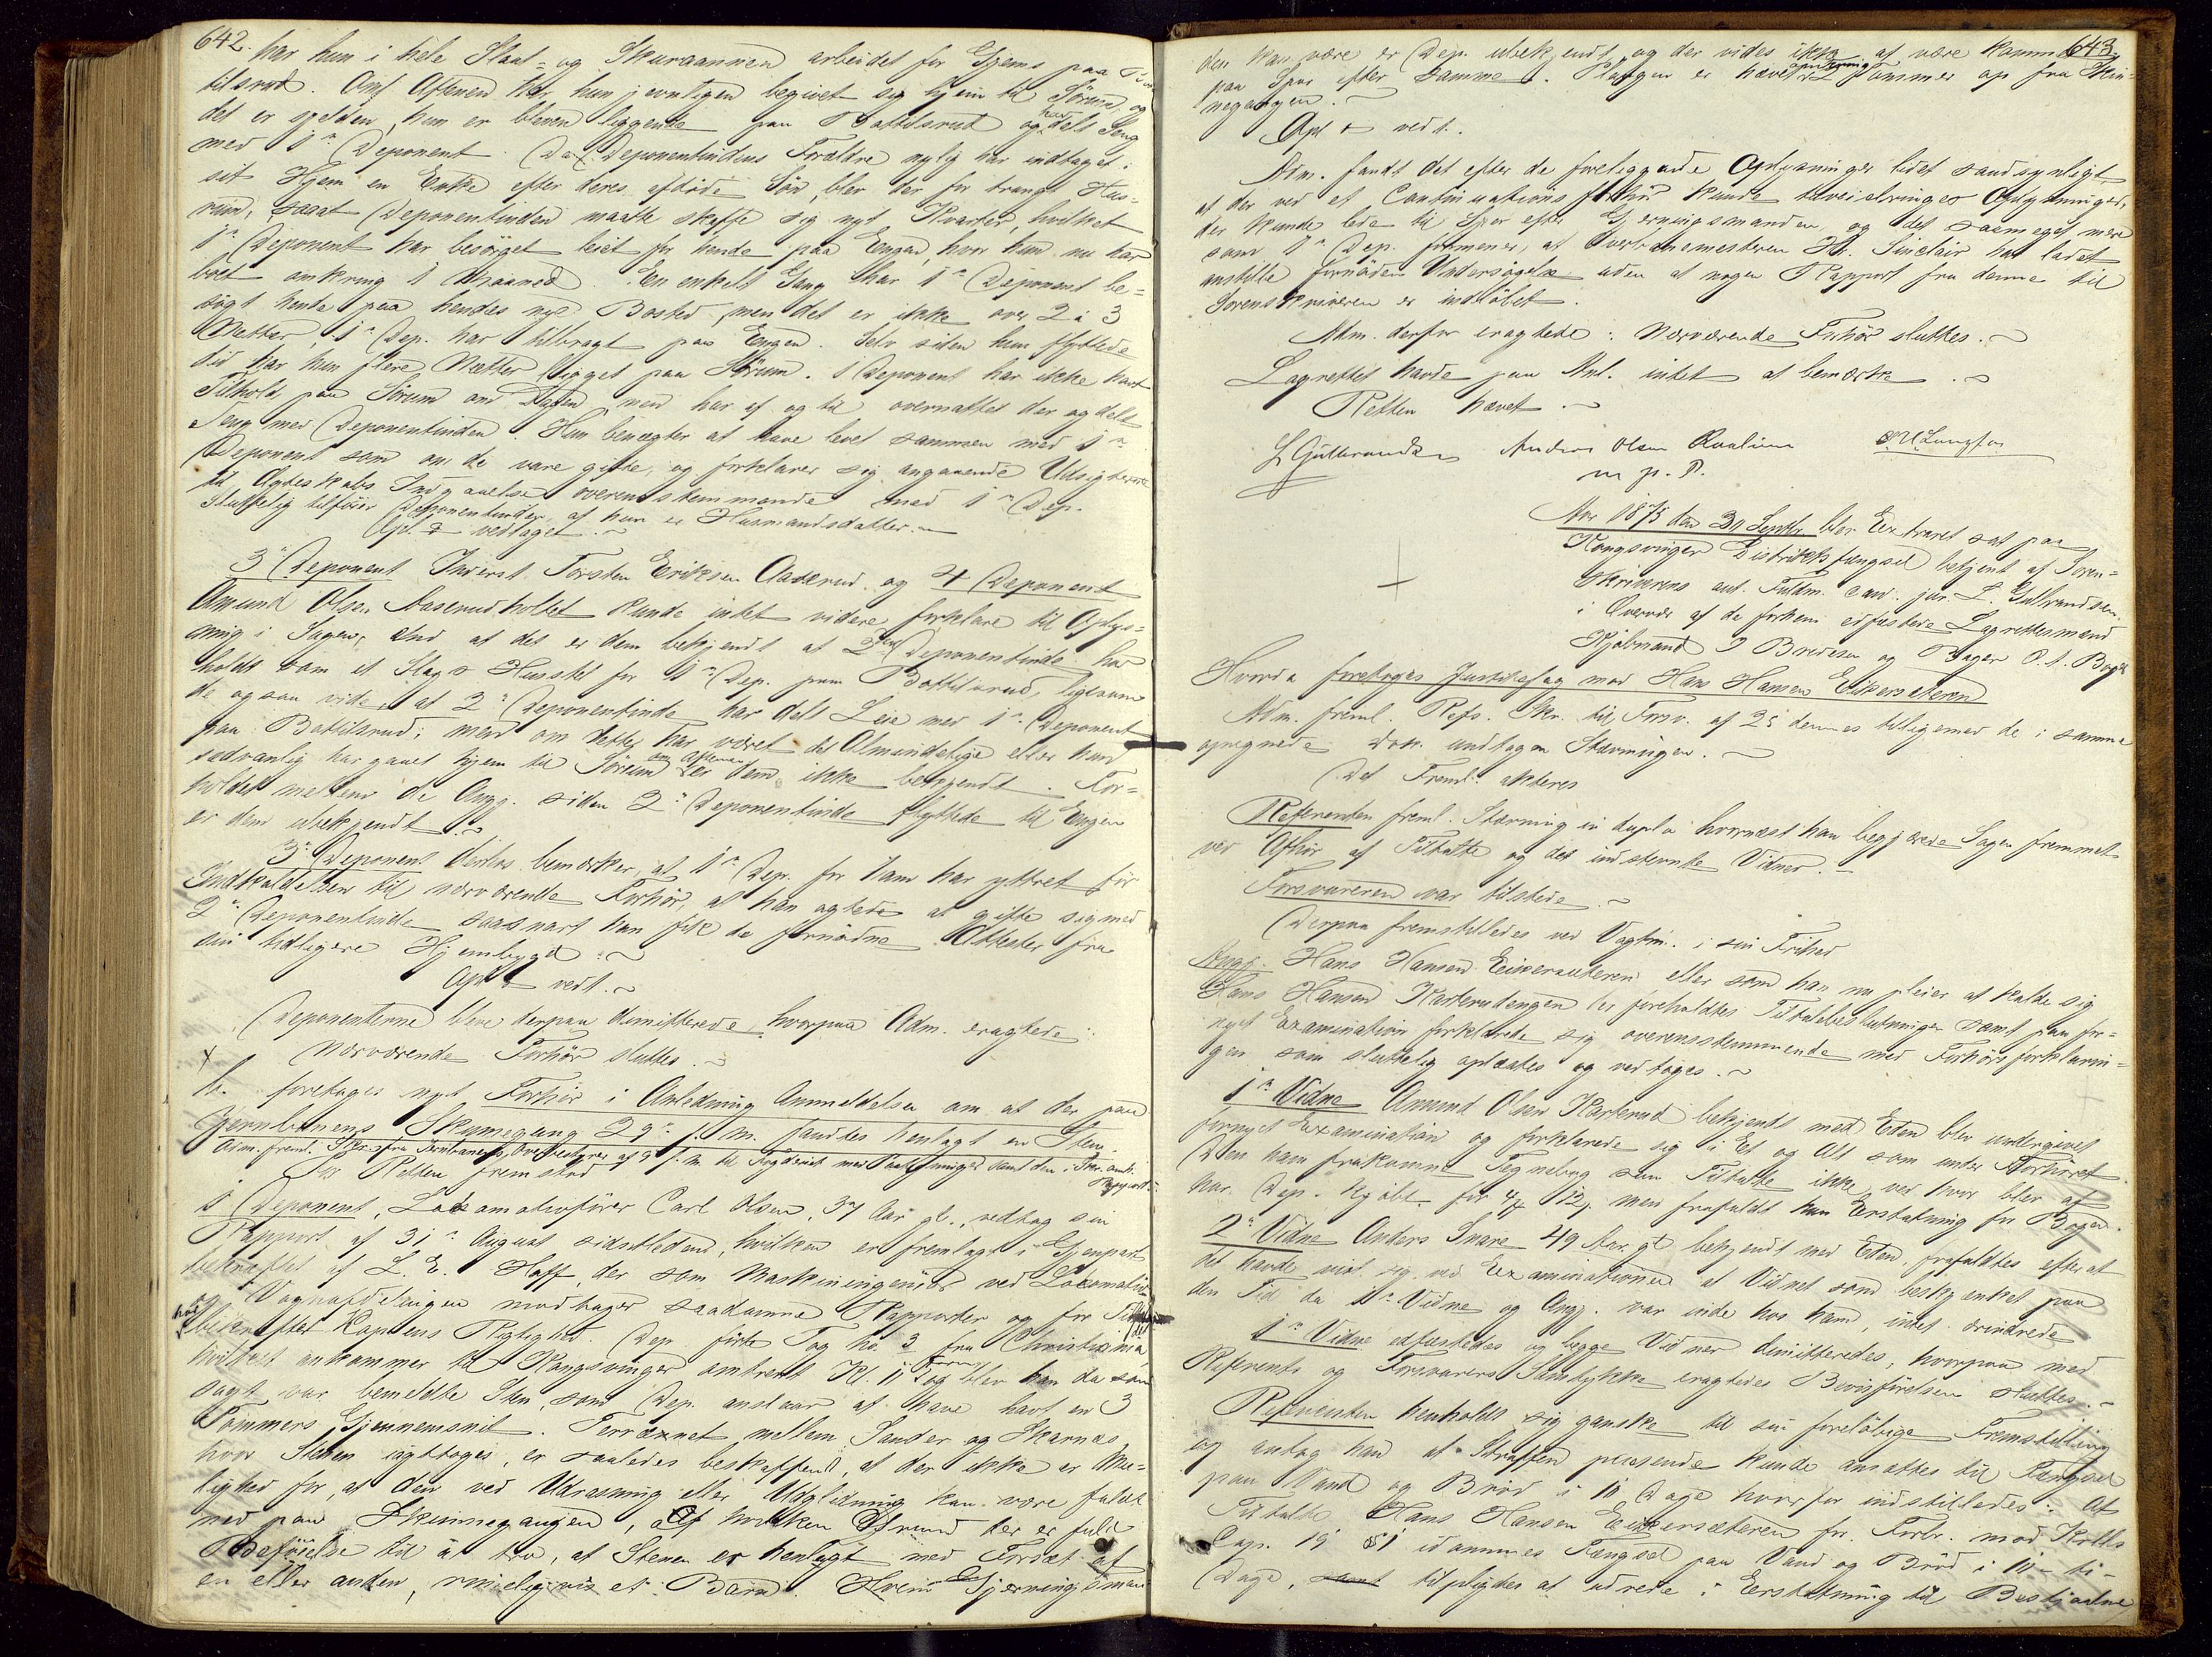 642.
har hun i hele Slaat- og Skuraannen arbeidet for Gjems paa
tilsrud. Om Aftenen har hun jevnligen begivet sig hjem til Sörum, og
det er sjelden, hun er bleven liggende paa Bottilsrud og har delt Seng
med 1ste Deponent. Da Deponentindens Forældre nylig har indtaget i
sit Hjem en Enke efter deres afdöde Sön, blev der for trangt Hus-
rum, saaat Deponentinden maatte skaffe sig nyt Kvarter, hvilket
1ste Deponent har besörget leiet for hende paa Engen, hvor hun nu har
boet omkring 1 Maaned. En enkelt Gang har 1ste Deponent be-
sögt hende paa hendes nye Bosted, men det er ikke over 2 à 3
Nætter, 1ste Dep. har tilbragt paa Engen. Selv siden hun flyttede
did har hun flere Nætter ligget paa Sörum. 1 Deponent har ikke havt
Tilhold paa Sörum om Dagen, men har af og til overnattet der og delt
Seng med Deponentinden. Hun benægter at have levet sammen med 1ste
Deponent som om de vare gifte, og forklarer sig angaaende Udsigterne
til Ægteskabs Indgaaelse overensstemmende med 1ste Dep.
Sluttelig tilföier Deponentinden, at hun er Husmandsdatter.
Opl. & vedtaget.
3die Deponent Inderst Torsten Eriksen Aaserud og 4 Deponent
Amund Olsen Aaserudholtet kunde intet videre forklare til Oplys-
ning i Sagen, end at det er dem bekjendt at 2den Deponentinde har
holdt som et Slags Husstel for 1ste Dep. paa Bottilsrud, ligesom
de ogsaa vide, at 2den Deponentinde har delt Leie med 1ste Deponent
paa Bottilsrud; men om dette har været det Almindelige eller hun
sedvanlig har gaaet hjem til Sörum om Aftenen er dem ikke bekjendt. For-
holdet mellem de Angj. siden 2den Deponentinde flyttede til Engen
er dem ubekjendt.
3die Deponent derhos bemærker, at 1ste Dep. for ham har yttret för
Indkaldelsen til nærværende Forhör, at han agtede at gifte sig med
2den Deponentinde saasnart han fik de fornödne Attester fra
sin tidligere Hjembygd.
Opl & vedt.
Deponenterne bleve derpaa dimitterede, hvorpaa Adm. eragtede:
Nærværende Forhör sluttes.
foretoges nyt Forhör i Anledning Anmeldelse om at der paa
Jernbanens Skinnegang 29de f. M. fandtes henlagt en Sten.
Adm. freml. Skr. fra Jernbanens Overbestyrer af 9 f. M. til Fogderiet med Paategninger samt den i Skr. omh.
Rapport
For Retten fremstod
1 Deponent, Lokomotivförer Carl Olsen, 37 Aar gl., vedtog sin
Rapport af 31te August sidstleden, hvilken er fremlagt i Gjenpart
bekræftet af L. E. Hoff, der som Maskiningeniör ved Lokomotiv
og Vognafdelingen modtager saadanne Rapporter og for
bekræftet Kopiens Rigtighed. Dep. förte Tog No. 3 fra Christiania,
hvilket ankommer til Kongsvinger omtrent Kl. 11 Form. og blev han da som
sagt var bemeldte Sten, som Dep. anslaar at have havt en 3
Tommers Gjennemsnit. Terrænet mellem Sander og Skarnæs
hvor Stenen iagttoges, er saaledes beskaffent, at der ikke er Mu-
lighed for, at den ved Udrasning eller Udglidning kan være faldt
ned paa Skinnegangen, af hvilken Grund der er fuld
Beföielse til at tro, at Stenen er henlagt med Forsæt af
en eller anden, rimeligvis et Barn. Hvem Gjerningsman-
643.
den kan være er Dep. ubekjendt, og der vides ikke at være kommen
paa Spor efter samme. Plougen er hævet Tommer op fra Skin-
negangen.
Opl & vedt.
Adm. fandt det efter de foreliggende Oplysninger lidet sandsynligt
at der ved et Continuationsforhör kunde tilveiebringes Oplysninger,
der kunde lede til Spor efter Gjerningsmanden og det saameget mere
som 1ste Dep. formener, at Overbanemesteren Hr. Sinclair har ladet
anstille fornöden Undersögelse uden at nogen Rapport fra denne til
Sorenskriveren er indlöbet.
Adm. derfor eragtede: Nærværende Forhör sluttes.
Lagrettet havde paa Anl. intet at bemærke.
Retten hævet.
L Gulbrandsen Anders Olsen
m. p. P.
Aar 1875 den 30 Septbr. blev Extraret sat paa
Kongsvinger Distriktsfængsel betjent af Soren-
skriverens aut. Fuldm. cand. jur. L. Gulbrandsen,
i Overvær af de forhen edfæstede Lagrettesmænd
Kjöbmand J Bredesen og Bager O. A.
Hvorda foretoges Justitssag mod Hans Hansen Eikersæteren
Adm. freml. Refs. Skr. til Forsv. af 25 dennes tilligemed de i samme
opregnede Dok. undtagen Stævningen.
Det Freml. akteres
Referenten freml. Stævning in duplo hvornæst han begjærede Sagen fremmet
ved Afhör af Tiltalte og det indstevnte Vidner.
Forsvareren var tilstede.
Derpaa fremstilledes ved Vagtm. i sin Frihed
Angj. Hans Hansen Eikersæteren eller som han nu pleier at kalde sig
Hans Hansen Karterudengen foreholdtes Tiltalebeslutningen samt paa for-
nyet Examination forklarede sig overensstemmende med Forhörsforklarin-
gen som sluttelig oplæstes og vedtoges.
1ste Vidne Amund Olsen Karterud bekjendt med Eden blev undergivet
fornyet Examination og forklarede sig i Et og Alt som under Forhöret.
Den ham frakomne Tegnebog som Tiltalte ikke ved hvor blev af
har Dep. kjöbt for 12 men frafaldt han Erstatning for Bogen.
2det Vidne Anders Snare 49 Aar gl. bekjendt med Eden, frafaldtes efterat
det havde vist sig ved Examinationen at Vidnet som beskjenket paa
den Tid da 1ste Vidne og Angj. var inde hos ham, intet erindrede.
1ste Vidne edfæstedes og begge Vidner dimitteredes, hvorpaa med
Referents og Forsvarers Samtykke eragtedes Bevisförelsen sluttet.
Referenten henholdt sig ganske til sin foreløbige Fremstilling
og antog han at Straffen passende kunde ansættes til Fængsel
paa Vand og Bröd i 10 Dage hvorfor indstilledes: At
Tiltalte Hans Hansen Eikersæteren for Forbr. mod Krlls
Cap. 19 § 1 idömmes Fængsel paa Vand og Bröd i 10 – ti –
Dage, samt tilpligtes at udrede i Erstatning til Bestjaalne